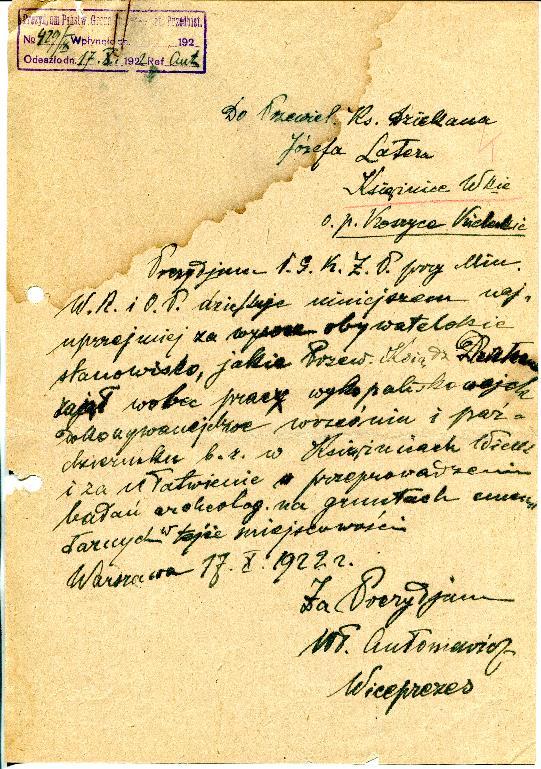 Prezydjum Państw. Grona Kons. Zab. Przedhist.
No 420/IX Wpłynęło dn. 192
Odeszło dn. 17.X. 1922 Ref. Ant
Do Przewiel. Ks. Dziekana
Józefa Latera
Książnice Wkie
o. p. Koszyce Kieleckie
Prezydjum P. G. K. Z. P. przy Min.
W. R. i O. P. dziękuje niniejszem naj-
uprzejmiej za wysoce obywatelskie
stanowisko, jakie Przew. Ksiądz Dziekan
zajął wobec pracy wykopaliskowych
dokonywanych we wrześniu i paź-
dzierniku b. r. w Książnicach Wielk
i za ułatwienie w przeprowadzeniu
badań archeolog. na gruntach cmen-
tarnych w tejże miejscowości
Warszawa 17. X. 1922 r.
Za Prezydjum
Wł. Antoniewicz
Wiceprezes